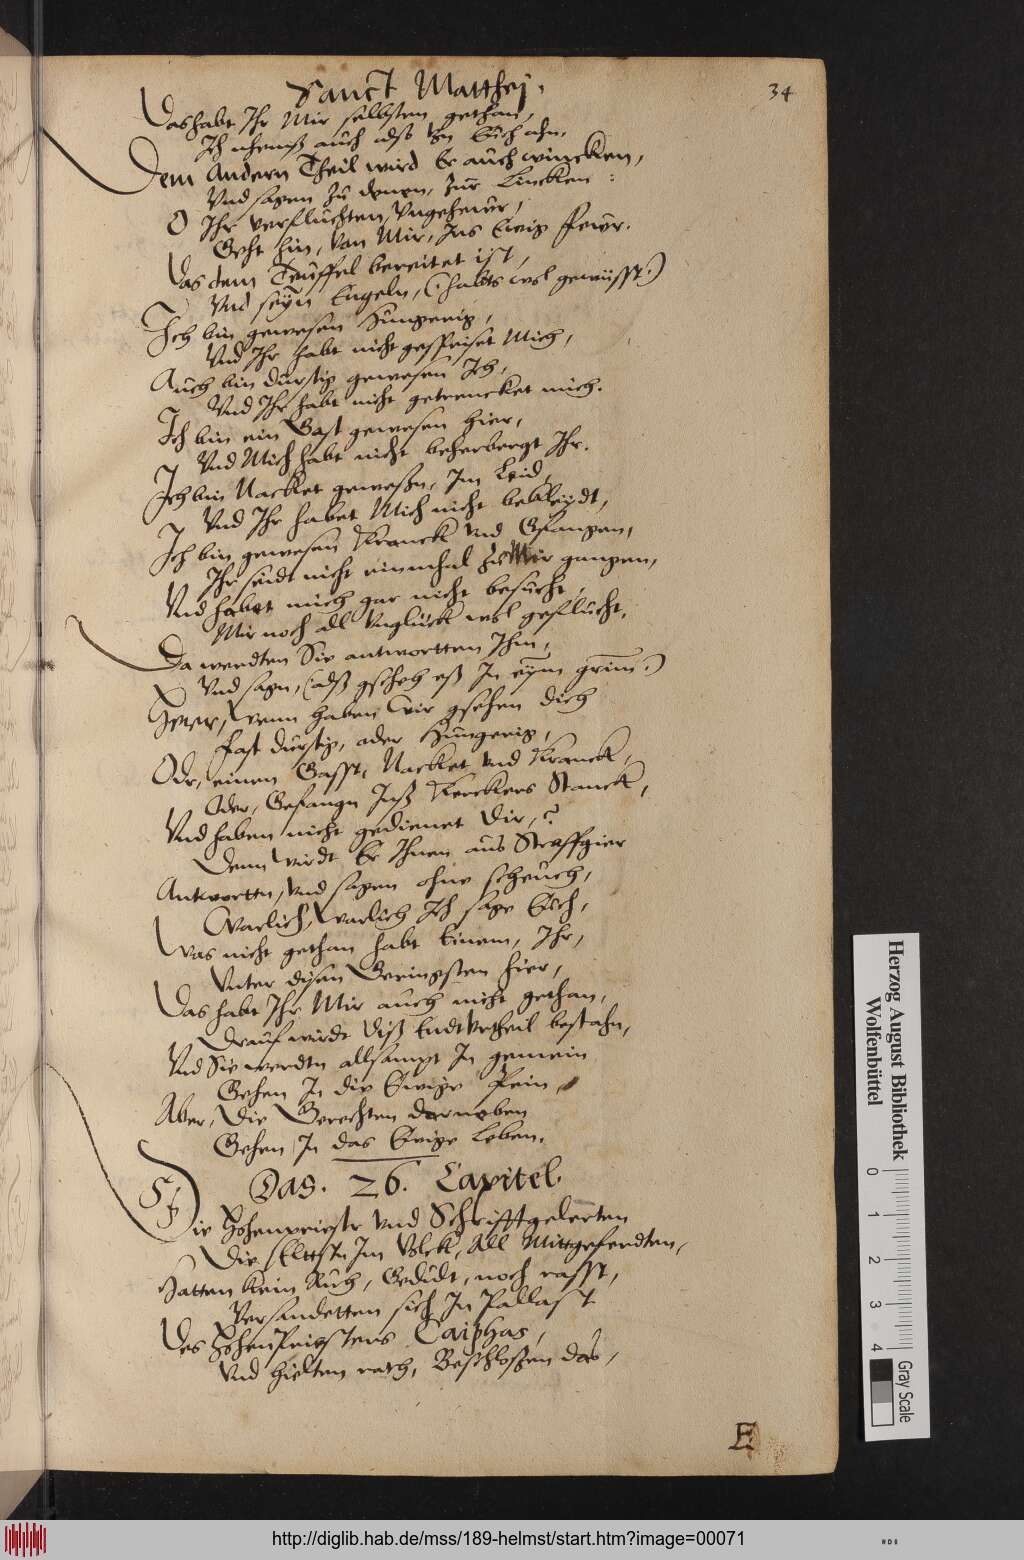 Sanct Matthej.
34
Das habt Ihr Mir selbsten gethan,
Ich nhemß auch alß von Euch ahn.
Dem Andern Theil wird Er auch wincken,
Vnd sagen zu denen, zur Lincken:
O Ihr verfluchten Vngeheur,
Geht hin, von Mir, Ins Ewig feur.
Das dem Teuffel bereitet ist,
Vnd seyn Engeln, (habts wol gewüsst.)
Ich bin gewesen Hungerig,
Vnd Ihr habt nicht gespeiset Mich,
Auch bin durstig gewesen Ich,
Vnd Ihr habt nicht getrencket mich.
Ich bin ein Gast gewesen hier,
Vnd Mich habt nicht beherbergt Ihr.
Ich bin Nacket geweßn, Im Leid,
Vnd Ihr habet Mich nicht bekleydt,
Ich bin gewesen Kranck vnd Gfangen,
Ihr seidt nicht einmhal zu Mir gangen,
Vnd habet mich gar nicht besucht,
Mir noch all Vnglück wol gesflucht.
Da werdten Sie antwortten Ihm,
Vnd sagn, (alß gscheh eß In eym grim.)
Herr, Wenn haben Wir gsehen dich
fast durstig, oder Hungerig,
Odr, einen Gasst, Nacket vnd Kranck,
Oder, Gefangn Inß Kerckers Stanck,
Vnd haben nicht gedienet Dir,?
Denn wirdt Er Ihnen aus Straffgier
Antwortn, vnd sagen ohne scheuch,
Warlich, Warlich Ich sage Euch,
Was nicht gethan habt Einem, Ihr,
Vnter disen Geringsten hier,
Das habt Ihr Mir auch nicht gethan,
Drauf wirdt diß Endt Vrtheil bestahn,
Vnd Sie werdtn allsampt In gemein
Gehen In die Ewige Pein,
Aber, Die Gerechten darneben
Gehen In das Ewige Leben.
Das. 26. Capitel.
Die Hohenpriestr vnd Schrifftgelerten
Die Elttstn Im Volck, All Mittgeferdten,
Hatten kein Ruh, Gedult, noch rasst,
Versamletten sich In Pallast
Des HohenPriesters Caiphas,
Vnd hielten rath, Beschloßen das,
E
Herzog August Bibliothek
Wolfenbüttel
0 1 2 3 4
Gray Scale
http://diglib.hab.de/mss/189-helmst/start.htm?image=00071